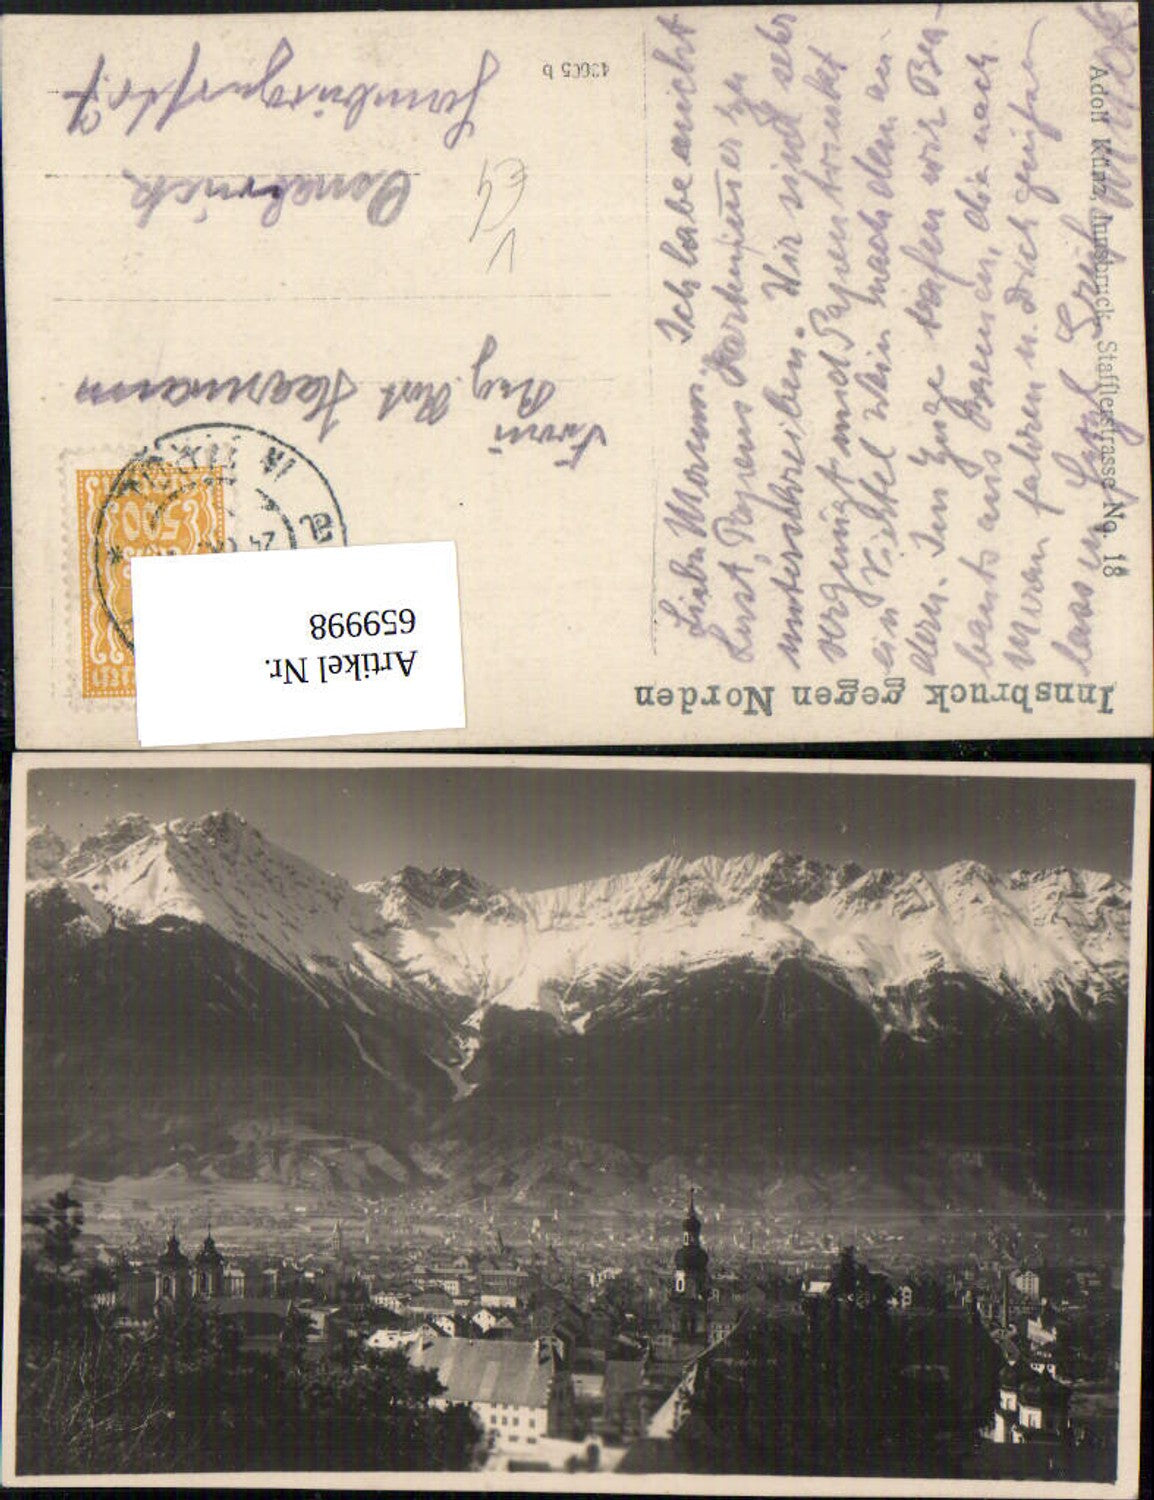 Innsbruck gegen Norden
Adolf Künz, Innsbruck, Stafflerstrasse No. 18
43605 b
Liebe Mama. Ich habe nicht
Lust, Papas Karte immer zu
unterschreiben. Wir sind sehr
vergnügt und Papa trinkt
ein Viertel Wein nach dem an-
dern. Im Zuge trafen wir Be-
kannte aus Bremen, die nach
Meran fahren u. Dich grüßen
lassen.
Frau
Reg. Rat Haarmann
Osnabrück
500
Artikel Nr.
659998